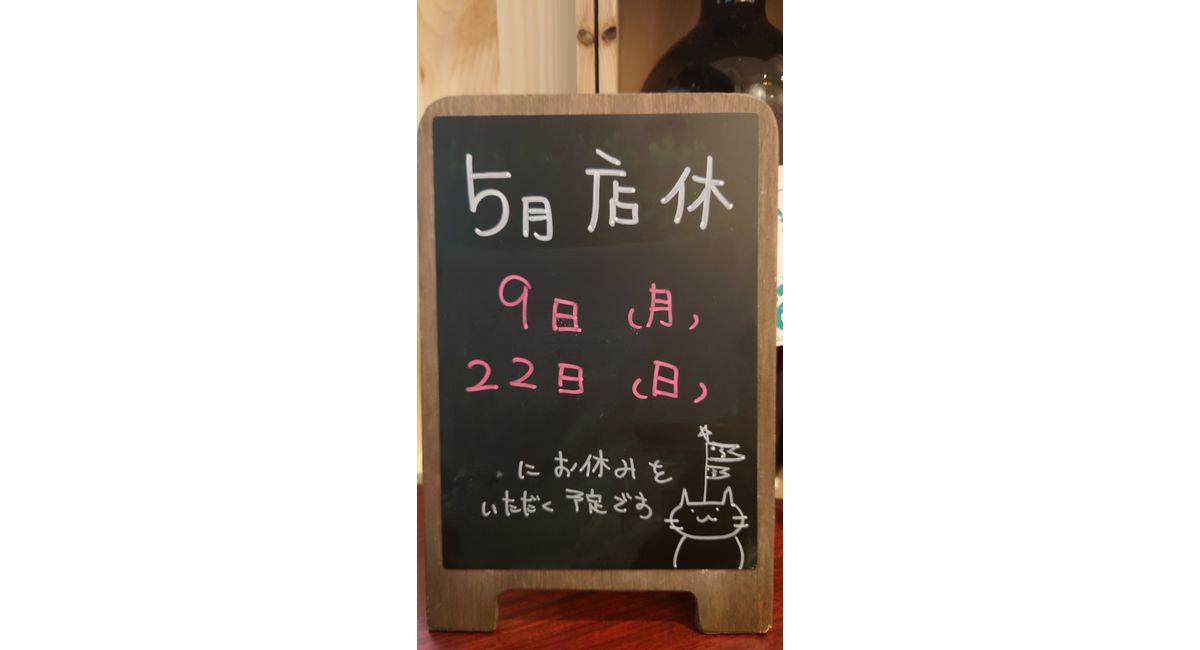 5月店休
9日(月)
22日(日)
にお休みを
いただく予定です